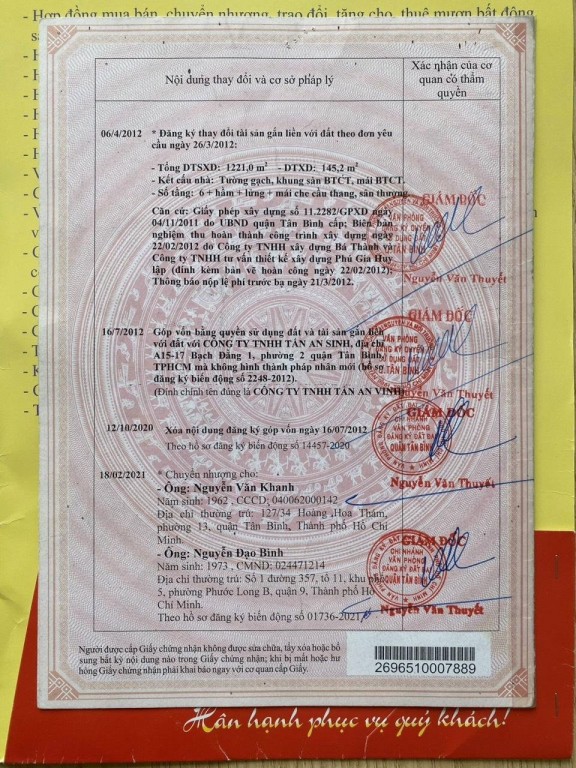 - Hợp đồng mua bán, chuyển nhượng, trao đổi, tặng cho, thuê mượn bất động
Nội dung thay đổi và cơ sở pháp lý
Xác nhận của cơ
quan có thẩm
quyền
06/4/2012 * Đăng ký thay đổi tài sản gắn liền với đất theo đơn yêu
cầu ngày 26/3/2012:
- Tổng DTSXD: 1221,0 m² - DTXD: 145,2 m²
- Kết cấu nhà: Tường gạch, khung sàn BTCT, mái BTCT.
- Số tầng: 6 + hầm + lửng + mái che cầu thang, sân thượng.
Căn cứ: Giấy phép xây dựng số 11.2282/GPXD ngày
04/11/2011 do UBND quận Tân Bình cấp; Biên bản
nghiệm thu hoàn thành công trình xây dựng ngày
22/02/2012 do Công ty TNHH xây dựng Bá Thành và
Công ty TNHH tư vấn thiết kế xây dựng Phú Gia Huy
lập (đính kèm bản vẽ hoàn công ngày 22/02/2012);
Thông báo nộp lệ phí trước bạ ngày 21/3/2012.
GIÁM ĐỐC
VĂN PHÒNG
ĐĂNG KÝ QUYỀN
SỬ DỤNG ĐẤT
TÂN BÌNH
Nguyễn Văn Thuyết
16/7/2012 Góp vốn bằng quyền sử dụng đất và tài sản gắn liền
với đất với CÔNG TY TNHH TÂN AN SINH, địa chỉ
A15-17 Bạch Đằng 1, phường 2 quận Tân Bình,
TPHCM mà không hình thành pháp nhân mới (hồ sơ
đăng ký biến động số 2248-2012).
(Đính chính tên đúng là CÔNG TY TNHH TÂN AN VINH)
GIÁM ĐỐC
VĂN PHÒNG
ĐĂNG KÝ QUYỀN
SỬ DỤNG ĐẤT
TÂN BÌNH
Nguyễn Văn Thuyết
12/10/2020 Xóa nội dung đăng ký góp vốn ngày 16/07/2012
Theo hồ sơ đăng ký biến động số 14457-2020
GIÁM ĐỐC
CHI NHÁNH
VĂN PHÒNG
ĐĂNG KÝ ĐẤT ĐAI
QUẬN TÂN BÌNH
Nguyễn Văn Thuyết
18/02/2021 * Chuyển nhượng cho:
- Ông: Nguyễn Văn Khanh
Năm sinh: 1962 , CCCD: 040062000142
Địa chỉ thường trú: 127/34 Hoàng Hoa Thám,
phường 13, quận Tân Bình, Thành phố Hồ Chí
Minh.
- Ông: Nguyễn Đạo Bình
Năm sinh: 1973 , CMND: 024471214
Địa chỉ thường trú: Số 1 đường 357, tổ 11, khu phố
5, phường Phước Long B, quận 9, Thành phố Hồ
Chí Minh.
Theo hồ sơ đăng ký biến động số 01736-2021
GIÁM ĐỐC
CHI NHÁNH
VĂN PHÒNG
ĐĂNG KÝ ĐẤT ĐAI
QUẬN TÂN BÌNH
Nguyễn Văn Thuyết
Người được cấp Giấy chứng nhận không được sửa chữa, tẩy xóa hoặc bổ
sung bất kỳ nội dung nào trong Giấy chứng nhận; khi bị mất hoặc hư
hỏng Giấy chứng nhận phải khai báo ngay với cơ quan cấp Giấy.
2696510007889
Hân hạnh phục vụ quý khách!